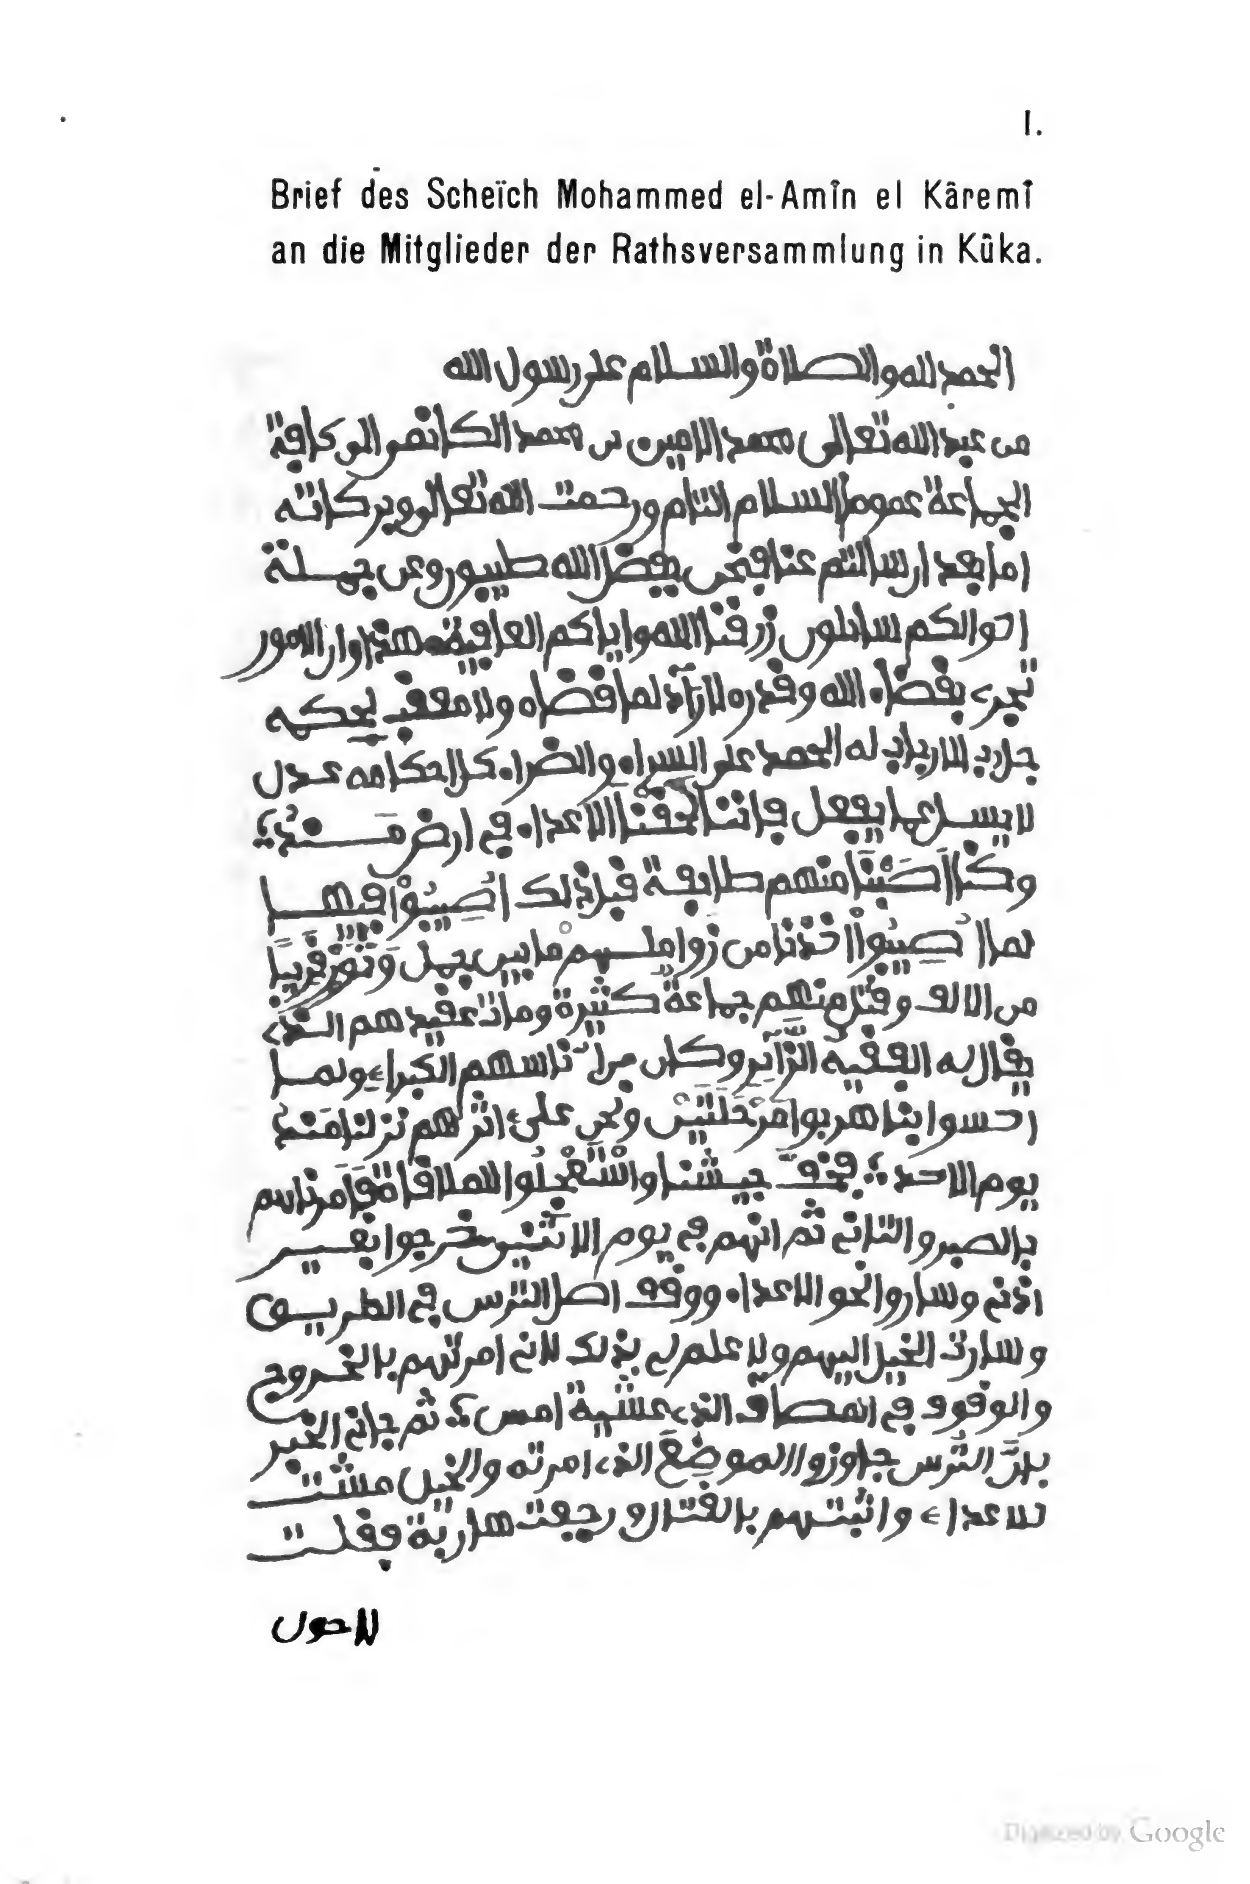 I.
Brief des Scheïch Mohammed el-Amîn el Kâremî
an die Mitglieder der Rathsversammlung in Kûka.
الحمد لله والصلاة والسلام على رسول الله
من عبد الله تعالى محمد الامين بن محمد الكانمي الى كافة
الجماعة عموما السلام التام ورحمت الله تعالى وبركاته
اما بعد ارسالتم عنا فنحن بفضل الله طيبون وعن جملة
احوالكم سائلون رزقنا الله واياكم العافية هذا وان الامور
تجرى بقضاء الله وقدره لا رآد لما قضاه ولا معقب لحكمه
جل رب الارباب له الحمد على السراء والضراء كل احكامه عدل
لا يسل عما يفعل فاننا لحقنا الاعداء في ارض
وكنا اَصَبْنَا منهم طايفة قبل ذلك اُصِيبُوْا فيها
لما اُصِيبُوْا اخذنا من زواملهم ما بين جمل وَثَوْرٍ قريبا
من الالف وقتل منهم جماعة كثيرة ومات عقيدهم الذى
يقال له الفقيه الزَّائر وكان من ناسهم الكبراء ولما
احسوا بنا هربوا مَرْحَلَتَيْن ونحن على اثرهم نزلنا
يوم الاحد جيشنا واسْتَعْجَلُوا للملاقاة فامرناهم
بالصبر والتانى ثم انهم في يوم الاثنين خرجوا بغير
اذنى وساروا نحو الاعداء ووقف اصل الترس في الطريق
وسارت الخيل اليهم ولا علم لى بذلك لانى امرتهم بالخروج
والوقوف في المصاف الذى عشية امس ثم جانى الخبر
بانَّ التُرس جاوزوا الموضِعَ الذى امرته والخيل مشت
للاعداء واثبتهم بالقتال ورجعت هاربة فقلت
لا حول
Digitized by Google